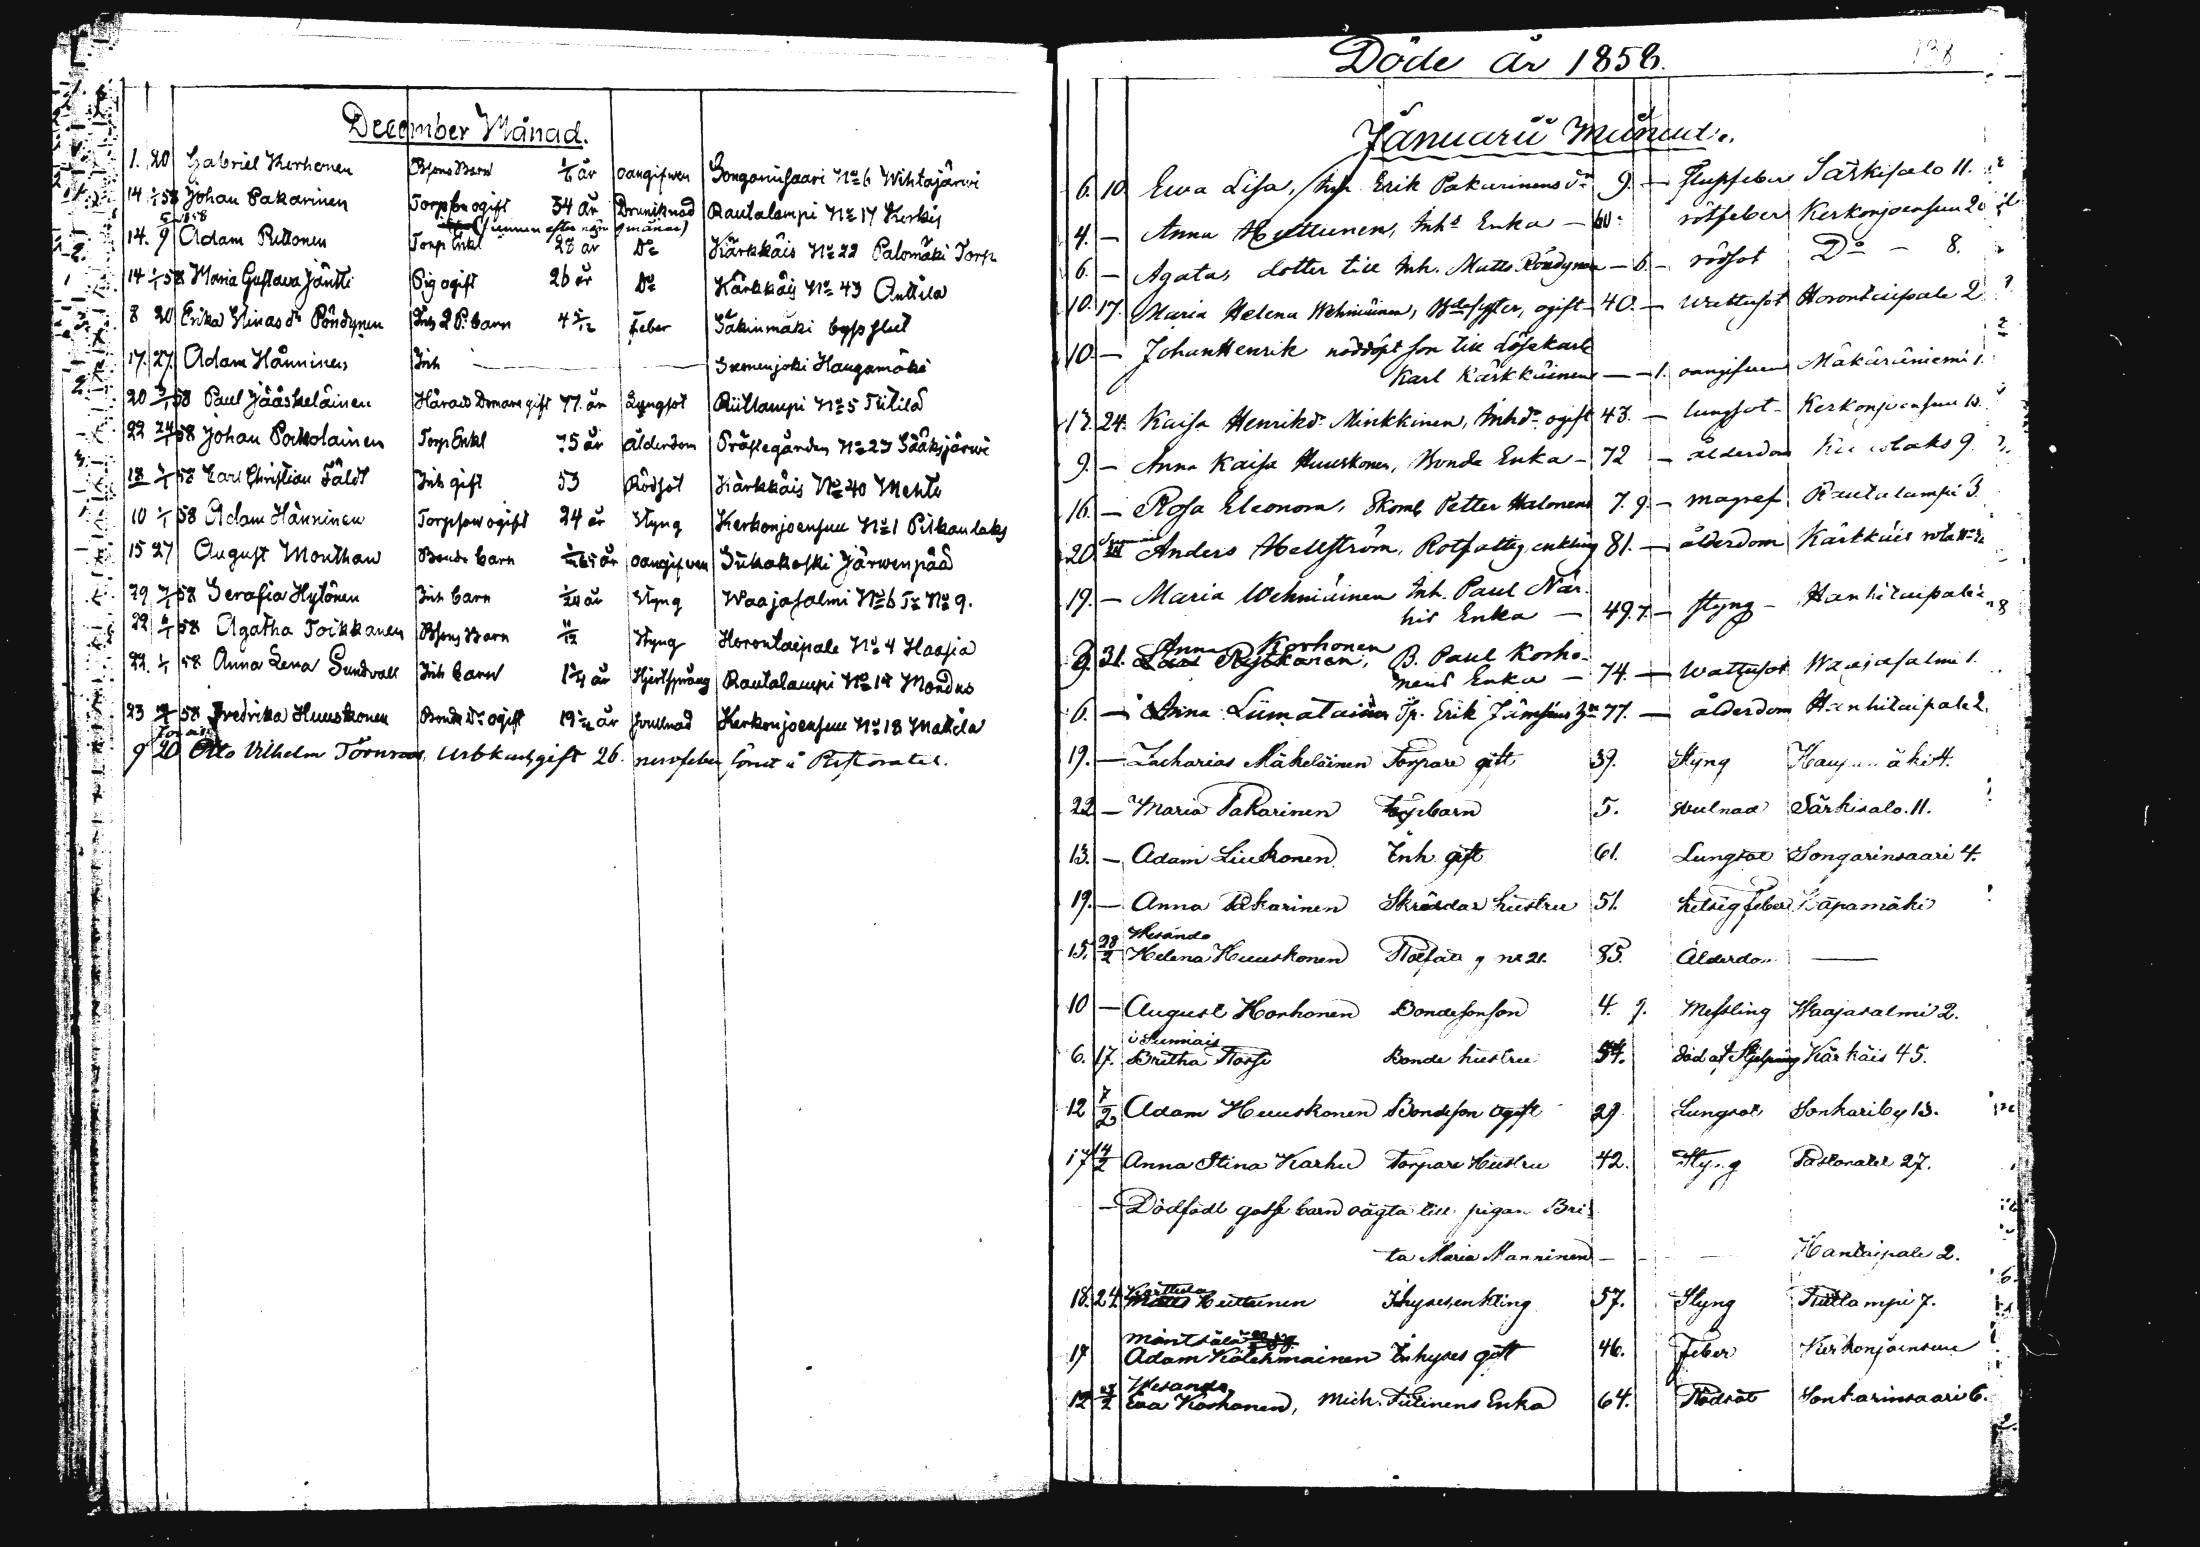 December Månad.
1. 20 Gabriel Korhonen Bsons Barn 1/6 år oangifwen Songarinsaari No 6 Wihtajärwi
14 1/1 58 Johan Pakarinen Torpson ogift 34 år Druniknad Rautalampi No 17 Kerkis
(funnen efter några månar)
14. 9 Adam Rittonen Torp Enkl 28 år Do Kärkkäis No 22 Palomäki Torp
14 1/1 58 Maria Gustava Jäntti Pig ogift 26 år Do Kärkkäis No 43 Anttila
8 20 Erika Ninas dr Pöndynen Inh 2 P. barn 4 5/12 feber Säkinmäki
17. 27. Adam Hänninen Inh Istenenjoki Haugamäki
20 3/1 58 Paul Jääskeläinen Härads Domare gift 77. år Lungsot Riitlampi No 5 Tiitilä
22 24/1 58 Johan Poikolainen Torp Enkl 75 år Ålderdom Prästegården No 27 Sääksjärwi
18 1/1 58 Carl Christian Fäldt Inh gift 53 Rödsot Kärkkäis No 40 Mehto
10 1/1 58 Adam Hänninen Torpson ogift 24 år Styng Kerkonjoensuu No 1 Pitkanlaks
15 27 August Monthan Bonde barn oangifwen Sukakoski Järwenpää
29 58 Serafia Hytönen Inh barn 1/24 år Styng Waajasalmi No 6 To No 9.
22 6/1 58 Agatha Toikkanen Bsons Barn 11/12 Styng Horontaipale No 4 Haasia
22. 1/1 58 Anna Lena Sundvall Inh barn år Hjertsprång Rautalampi No 17 Mondus
23 58 Fredrika Huuskonen Bonde Dr ogift 19 år svullnad Kerkonjoensuu No 18 Mattila
9 20 Otto Vilhelm Törnroos, gift 26. nervfeber

Döde år 1858.
138
Januarii Månad.
6. 10. Ewa Lisa, Inh Erik Pakarinens dr 9. — Slupfeber Särkisalo 11.
4. — Anna Huttunen, Inhs Enka — 60. rötfeber Kerkonjoensuu 20
6. — Agata, dotter till Inh. Matts Pöndynen — 6. — rödsot Do — 8.
10. 17. Maria Helena Wehniäinen, ogift — 40. — Wattusot Horontaipale 2
10 — Johan Henrik nöddöpt son till Lösekarl
Karl Kärkkäinen — — 1. oangifwen Mäkäräniemi 1.
17. 24. Kaisa Henriksdr Minkkinen, Inhdr ogift 43. — lungsot — Kerkonjoensuu 10.
9. — Anna Kaisa Huuskonen, Bonde Enka — 72 — ålderdom 9.
16. — Rosa Eleonora, Skom. Petter Halonens 7. 9. — magref Rautalampi 3.
20. Anders Hellström, Rotfattig enkling 81. — ålderdom Kärkkäis rota
19. — Maria Wehniäinen Inh. Paul När-
his Enka — 49. 7. — styng — Hankitaipale
9. 31. Anna Korhonen, B. Paul Korho-
nens Enka — 74. — Wattusot Waajasalmi 1.
6. — Anna Liimatainen Tp. Erik Jämsäns 77. — ålderdom Hankitaipale 2.
19. — Zacharias Mäkeläinen Torpare gift 39. Styng
22 — Maria Pakarinen barn 5. svulnad Särkisalo. 11.
13. — Adam Liukonen Inh. gift 61. Lungsot Songarinsaari 4.
19. — Anna Pakarinen Skräddar hustru 51. hetsig feber Käpämäki
Wesando
15. 28/2 Helena Huuskonen Rotfattig nr 21. 85. Ålderdom —
10 — August Korhonen Bondesonson 4. 9. Messling Waajasalmi 2.
i Sumiais
6. 17. Britha Rossi Bonde hustru 54. död af Kärkäis 45.
12 7/2 Adam Huuskonen Bondeson ogift 29. Lungsot Sonkariby 13.
17 14/2 Anna Stina Karhu Torpare Hustru 42. Styng Pastoratet 27.
— Dödfödt gosse barn oägta till pigan Bri-
ta Maria Manninen — — Hantaipale 2.
Karttula
18. 24. Matts Huttunen Ihyses, enkling 57. Styng Riitlampi 7.
Mäntsälä
17 Adam Kolehmainen Inhyses gift 46. Feber Kerkonjoensuu
Wesando
12 28/2 Eva Korhonen, Mich. Tiitinens Enka 64. Rödsot Sonkarinsaari 6.